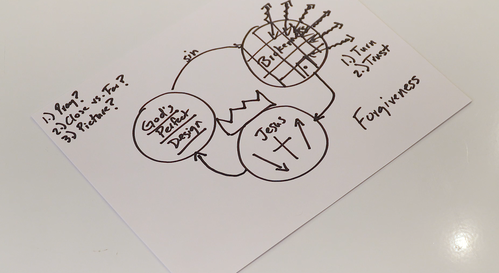 sin
Broken
1.) Turn
2.) Trust
1.) Pray?
2.) Close -vs- Far?
3.) Picture?
God's
Perfect
Design
Jesus
Forgiveness